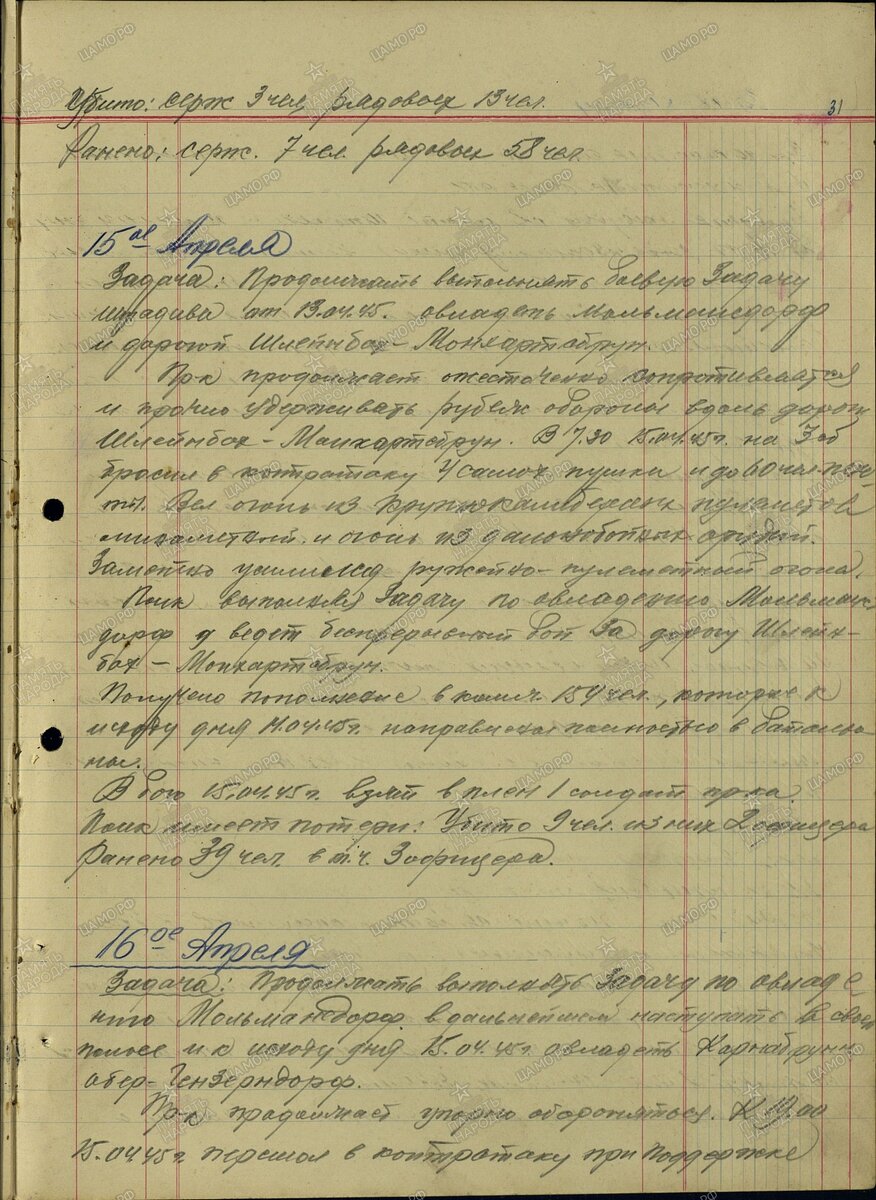 31
Убито: серж 3 чел, рядовых 13 чел.
Ранено: серж. 7 чел. рядовых 58 чел.
15ое Апреля
Задача: Продолжать выполнять боевую задачу
штадива от 13.04.45. овладеть Мольмансдорф
и дорогой Шлейнбах – Монхартсбрун.
Пр-к продолжает ожесточенно сопротивлятся
и прочно удерживать рубеж обороны вдоль дорог
Шлейнбах – Манхартсбрун. В 7.30 15.04.45г. на
бросил в контратаку 4 самох. пушки и до 60 чел.
Вел огонь из крупнокалиберных пулеметов
и огонь из дальнобойных орудий.
Заметно усилился ружейно-пулеметный огонь.
Полк выполняя задачу по овладению Мольманс-
дорф ведет беспрерывный бой за дорогу Шлейн-
бах – Монхартсбрун.
Получено пополнение в колич. 154 чел., которые к
исходу дня 14.04.45г. направлены полностью в батальо-
ны.
В бою 15.04.45г. взят в плен 1 солдат пр-ка.
Полк имеет потери: Убито 9 чел. из них 2 офицера
Ранено 39 чел. в т.ч. 3 офицера.
16ое Апреля
Задача: Продолжать выполнять задачу по овладе
нию Мольмансдорф в дальнейшем наступать в своей
полосе и к исходу дня 15.04.45г. овладеть Карнабрунн
обер-Гензерндорф.
Пр-к продолжает упорно обороняться. К 19.00
15.04.45г. перешол в контратаку при поддержке